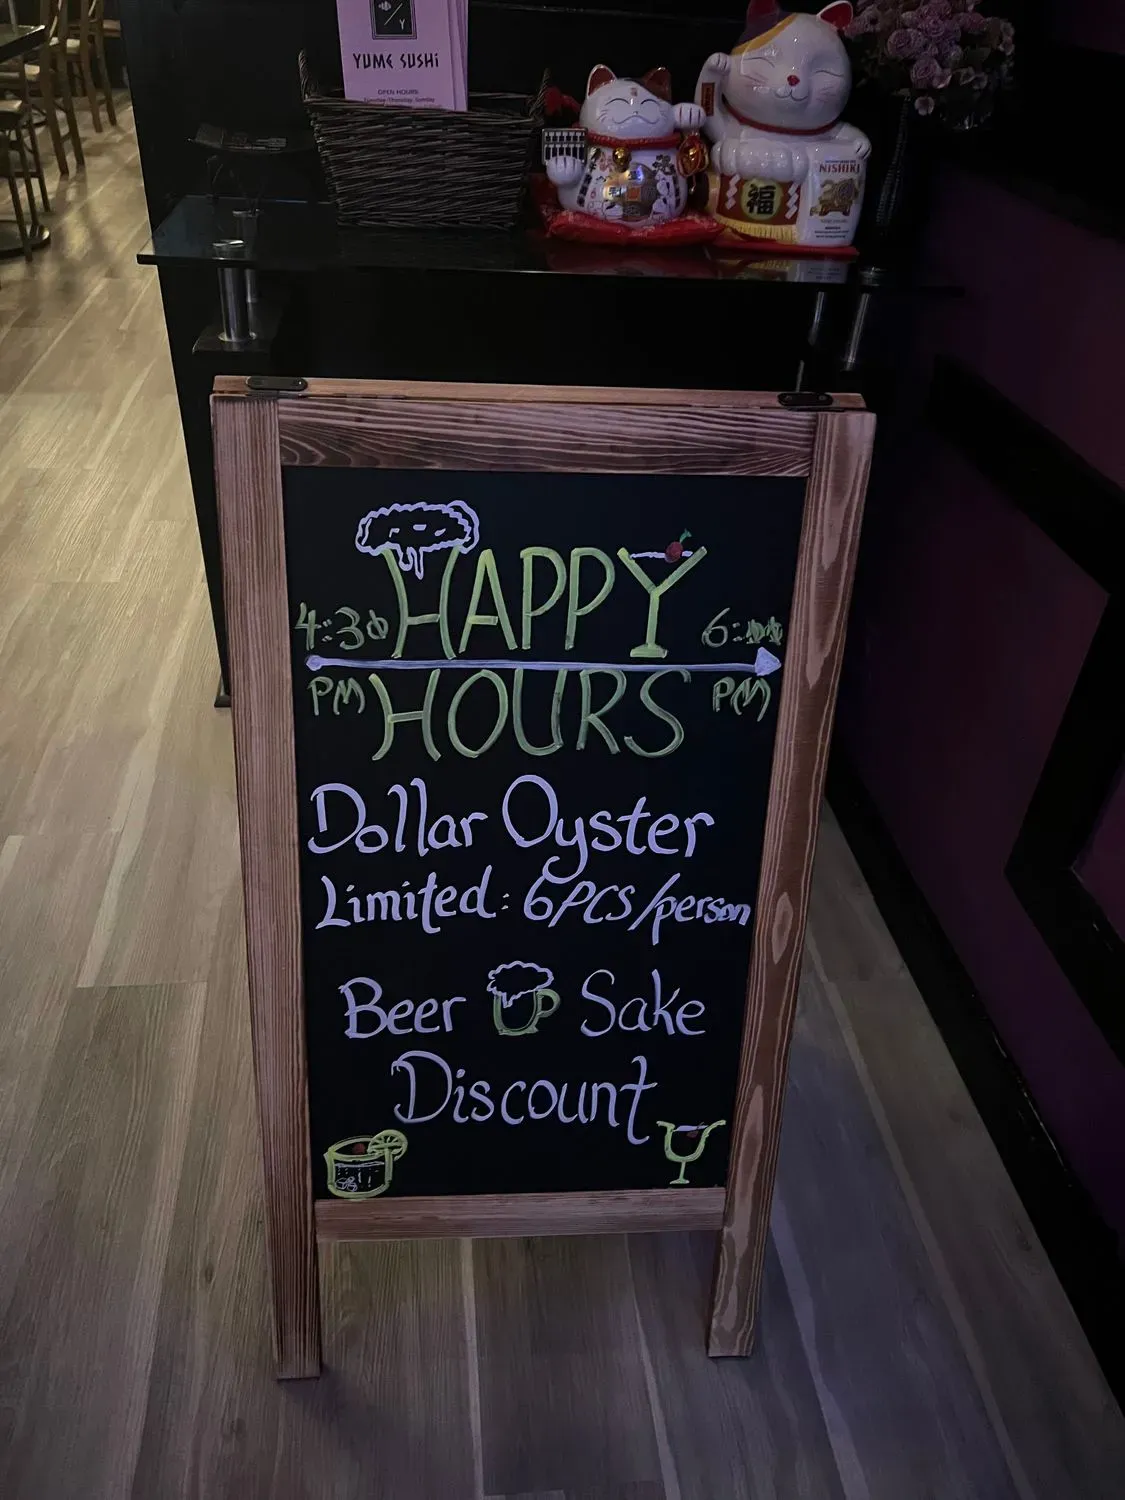 YUME SUSHI
OPEN HOURS:
NISHIKI
福
HAPPY
4:30 PM
6:00 PM
HOURS
Dollar Oyster
Limited: 6PCS/person
Beer Sake
Discount